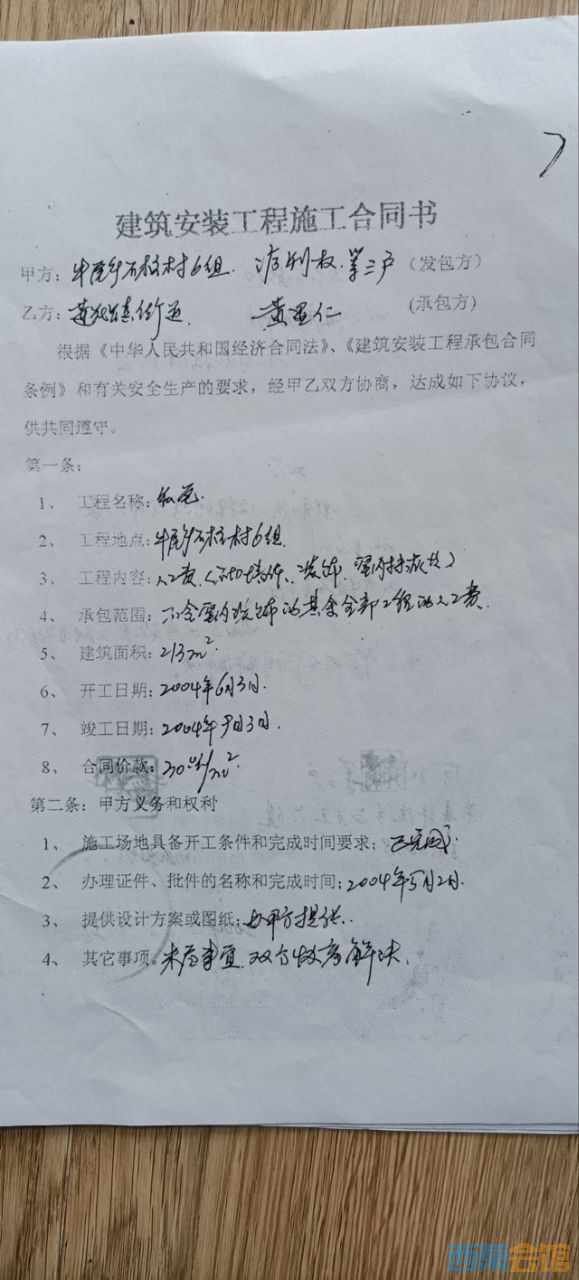 建筑安装工程施工合同书
甲方：牛尾乡石柱村6组. 权. 等三户（发包方）
乙方： 黄 仁 （承包方）
根据《中华人民共和国经济合同法》、《建筑安装工程承包合同
条例》和有关安全生产的要求，经甲乙双方协商，达成如下协议，
供共同遵守。
第一条：
1、 工程名称：私宅.
2、 工程地点：牛尾乡石柱村6组.
3、 工程内容：人工费（ 装饰、室内 ）
4、 承包范围：不含室内装饰的其余全部工程的人工费.
5、 建筑面积：213m².
6、 开工日期：2004年6月3日.
7、 竣工日期：2004年9月3日.
8、 合同价款： /m²
第二条：甲方义务和权利
1、 施工场地具备开工条件和完成时间要求；已完成.
2、 办理证件、批件的名称和完成时间；2004年5月2日.
3、 提供设计方案或图纸；由甲方提供.
4、 其它事项。未尽事宜.双方协商解决.
西祠会馆